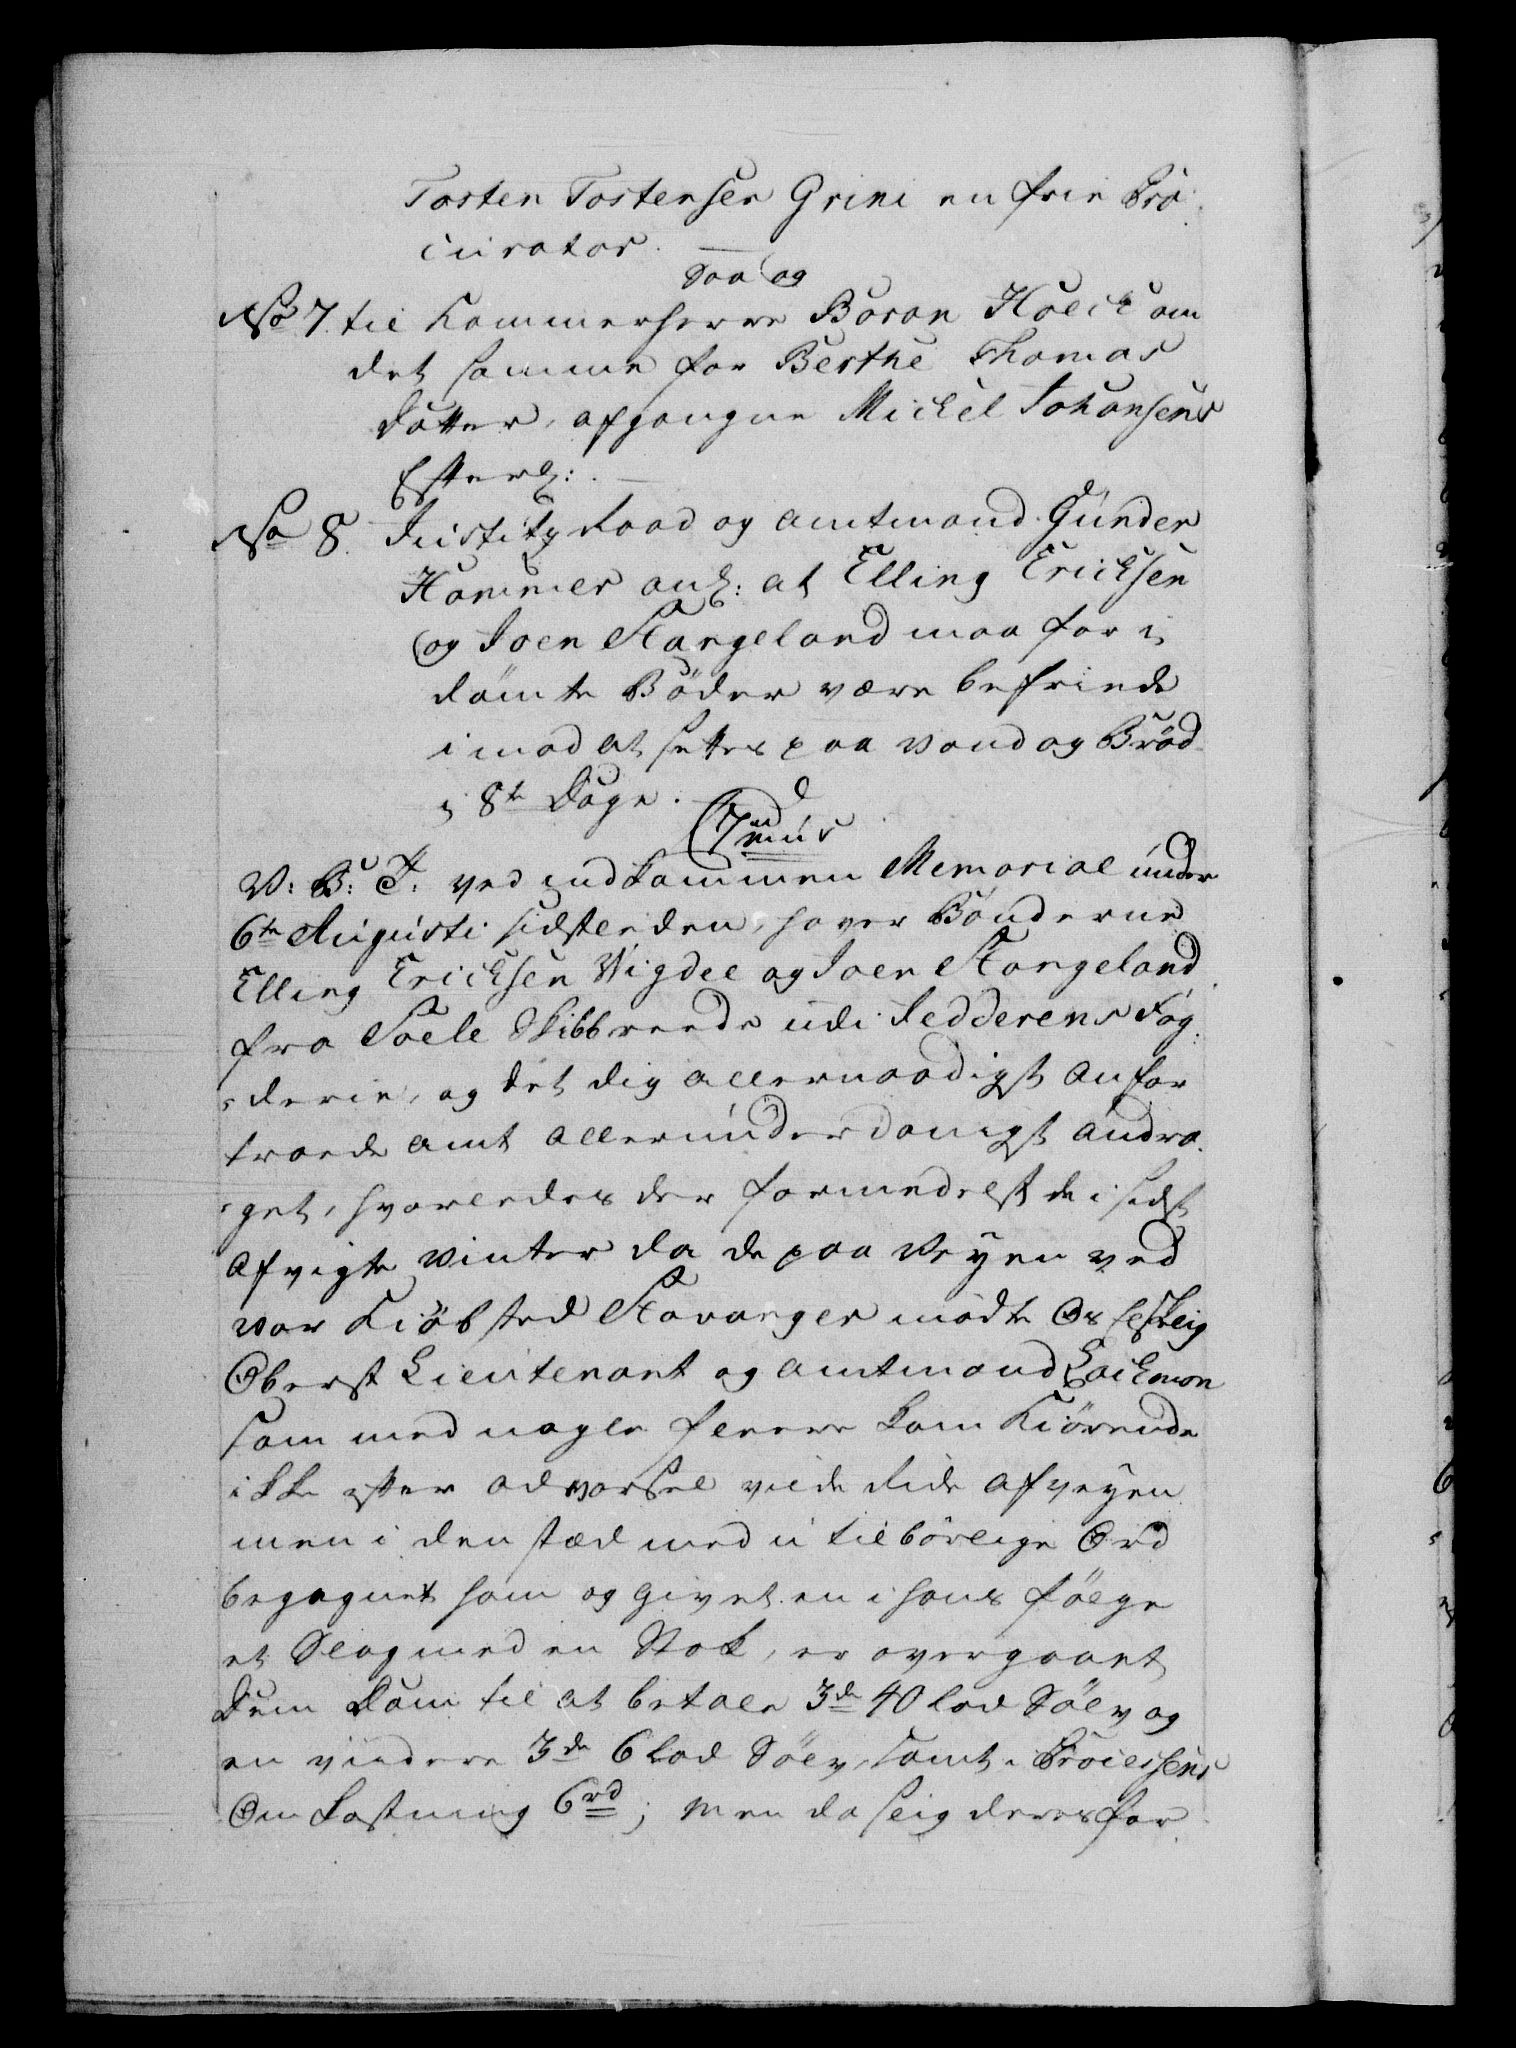 Tosten Tostensen Grini en frie Pro-
curator. —
Saa og
No 7. til Kammerherre Baron Hoeck om
det samme for Berthe Thomas
datter, afgangne Mickel Johansens
Efterl: —
No 8. Justitz Raad og Amtmand Gunder
Hammer anl: at Elling Ericksen
og Joen Stangeland maa for i-
dömte Böder være befriede
imod at settes paa Vand og Bröd
i 8te Dage.
7mus
V: B: T: ved indkommen Memorial under
6te Augusti sidstleden, haver Bönderne
Elling Ericksen Wigdel og Joen Stangeland
fra Soele Skibbreede udi Jedderens Fog-
derie, og det dig allernaadigst anfor
troede Amt allerunderdanigst andra-
get, hvorledes der formedelst de i sidst
afvigte Vinter da de paa Veyen ved
vor Kiöbsted Stavanger mödte Os Elskelig
Oberst Lieutenant og Amtmand
som med nogle fleere kom Kiörende
ikke efter Advarsel vilde Ride af Veyen
men i den stæd med utilbörlige Ord
begegnet ham og givet en i hans fölge
et Slag med en Stok, er overgaaet
Dem Dom til at betale 3de 40 Lod Sölv og
en videre 3de 6 Lod Sölv, samt i Processens
Omkostning 6rd; men da slig deres for